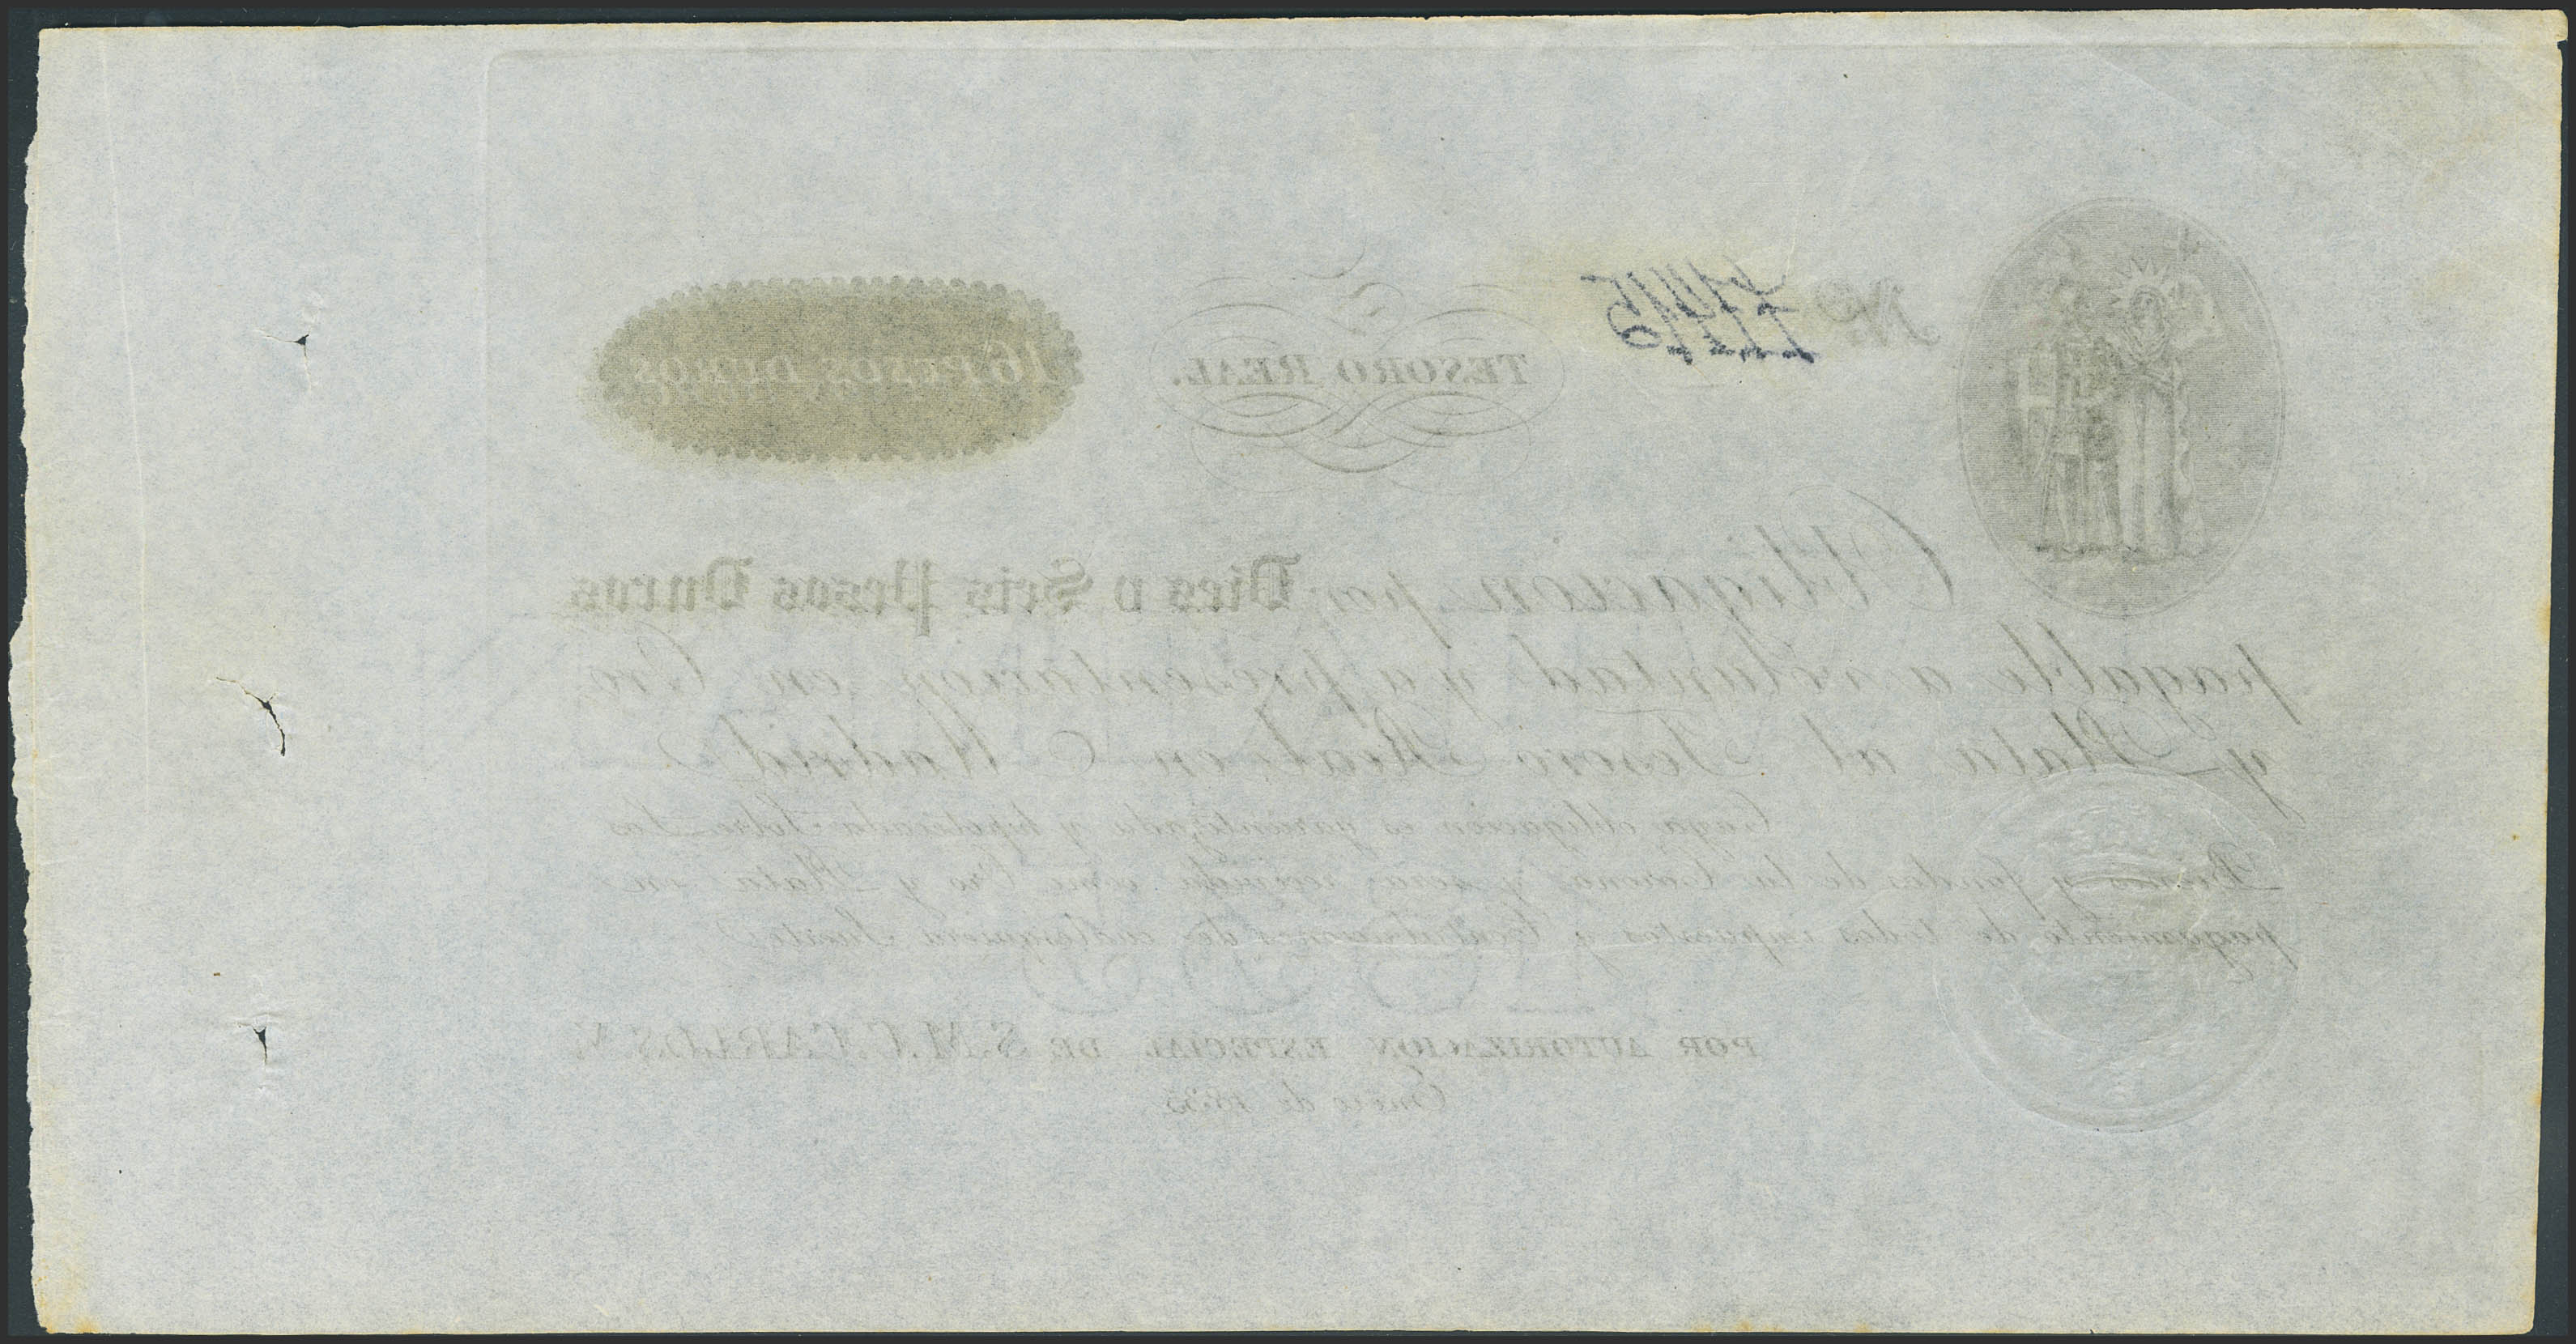 Nº
TESORO REAL.
16 PESOS DUROS
Obligacion por Diez y Seis Pesos Duros
pagable a voluntad y a presentacion en Oro
y Plata al Tesoro Real en Madrid
Cuya obligacion es garantizada y hipotecada sobre los
Bienes y fondos de la Corona y sera recivida como Oro y Plata en
pagamiento de todos impuestos y Contribuciones de cualesquiera Suertes
POR AUTORIZACION ESPECIAL DE S.M.C. CARLOS V.
Enero de 1835